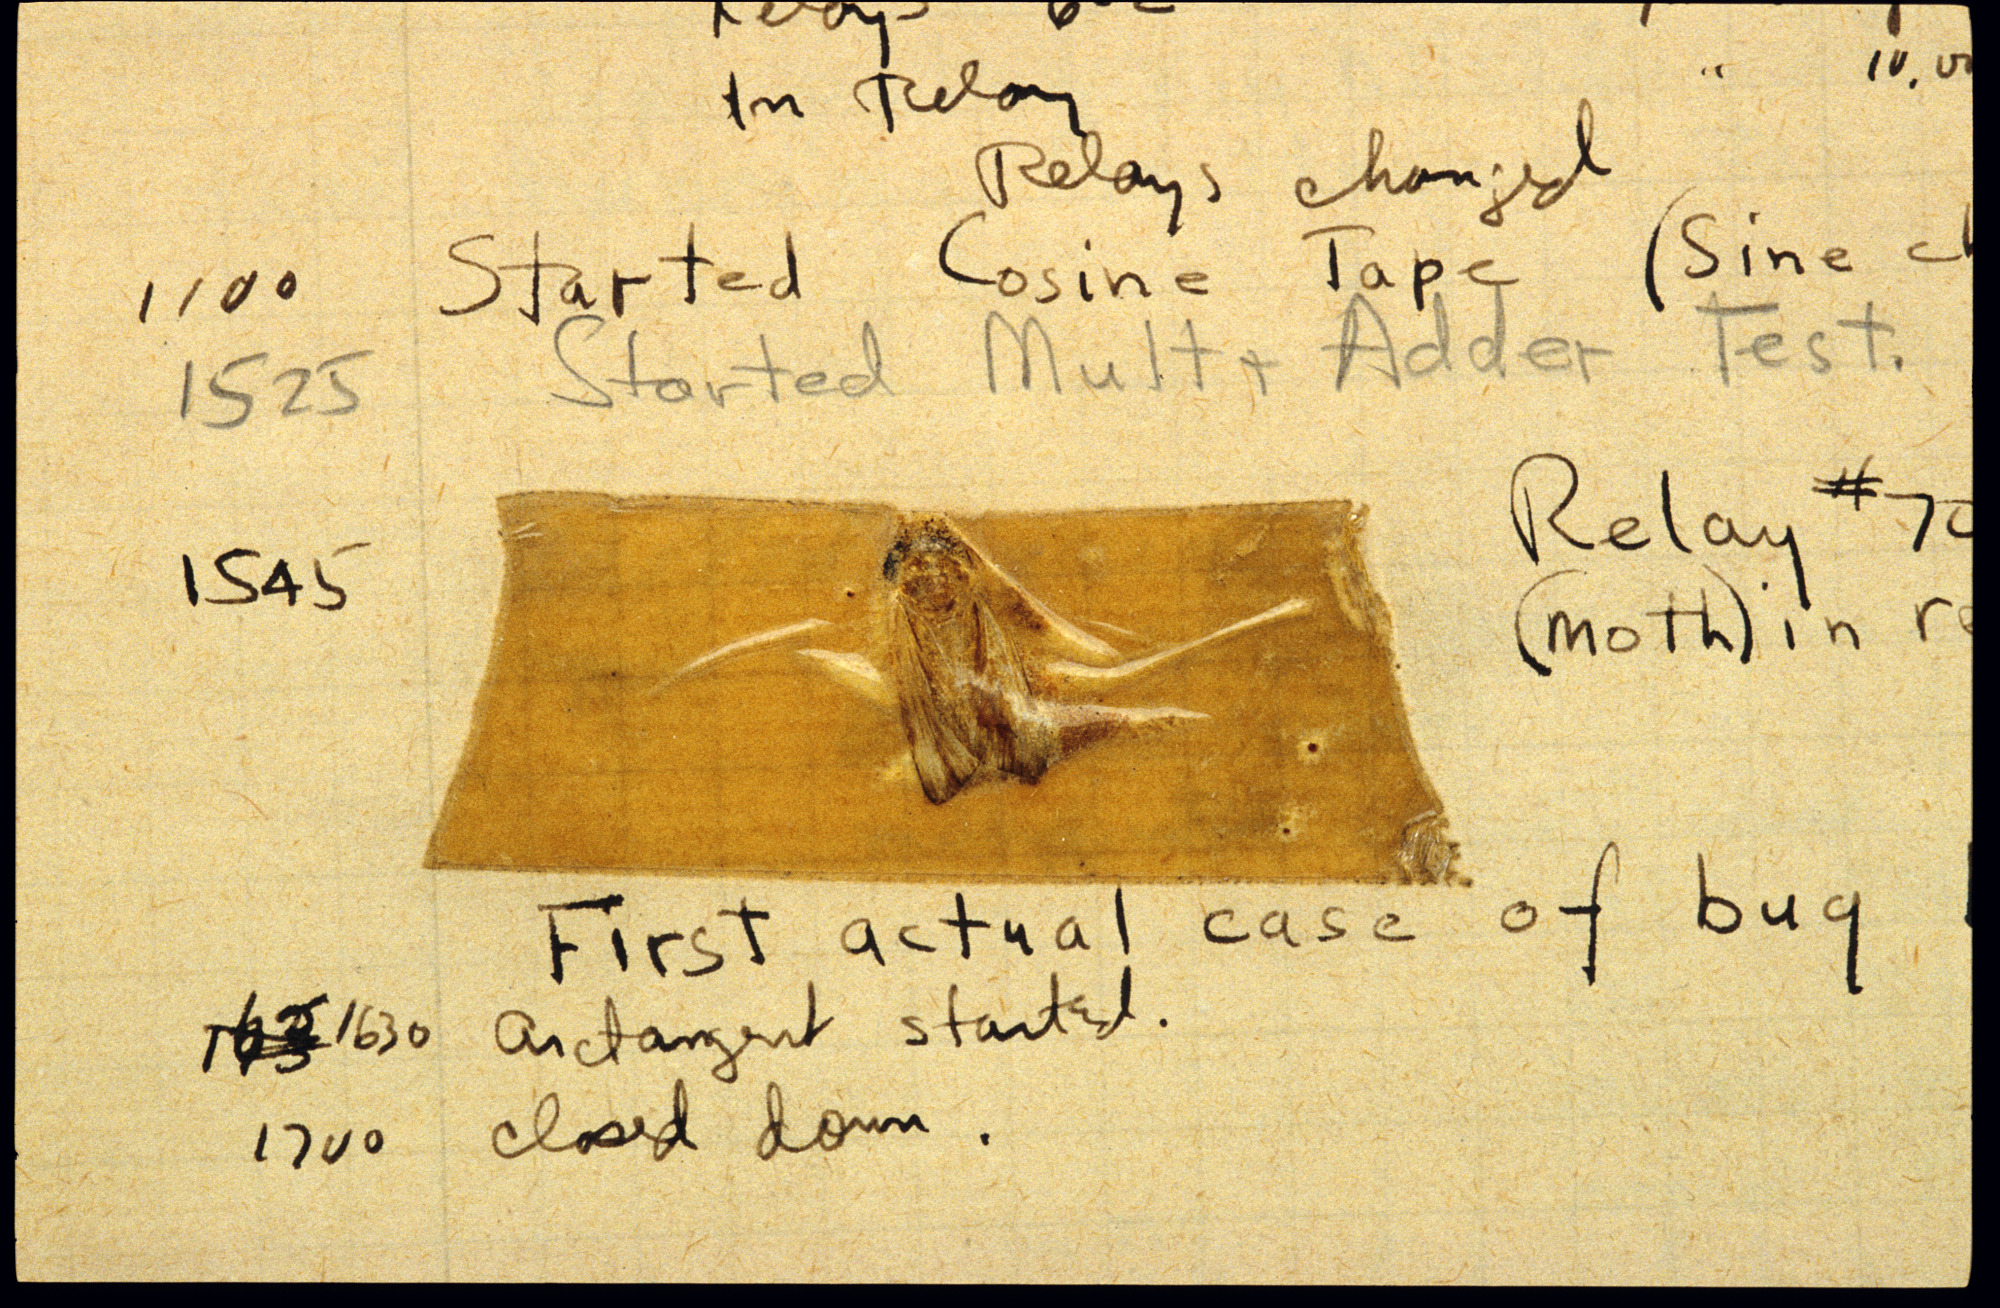 Relays
In Relay
" 10,00
Relays changed
1100 Started Cosine Tape (Sine ch
1525 Started Mult+ Adder Test.
1545 Relay #70
(moth) in re
First actual case of bug
1630 arctangent started.
1700 closed down.